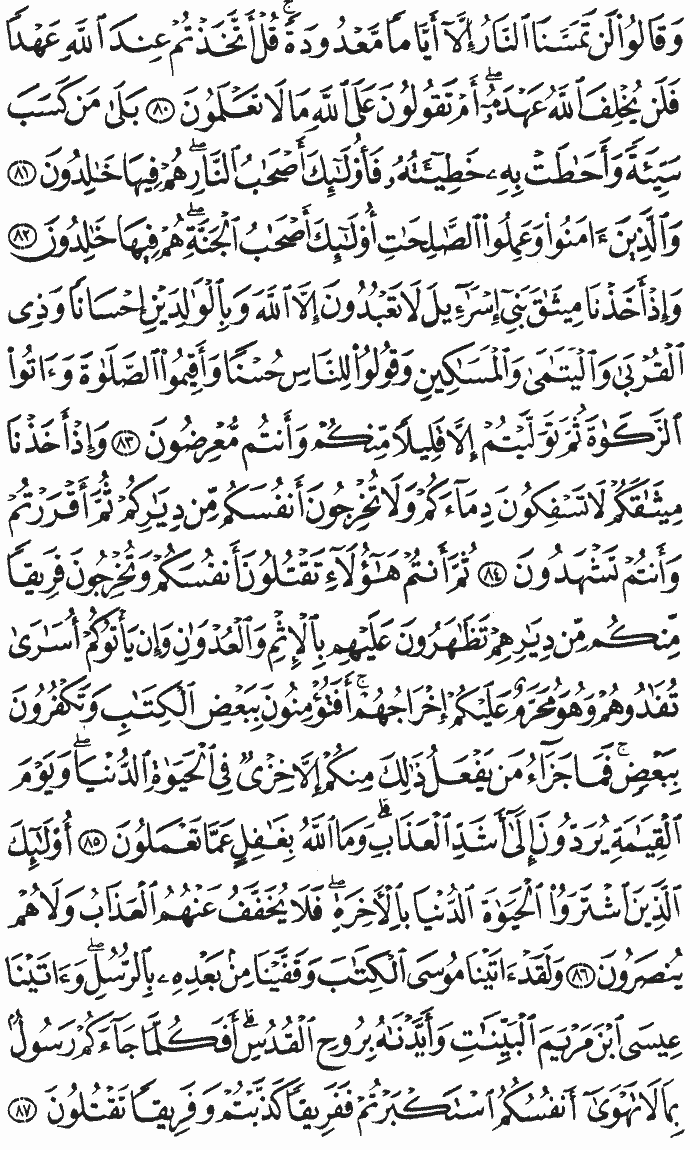 وَقَالُوا۟ لَن تَمَسَّنَا ٱلنَّارُ إِلَّآ أَيَّامًۭا مَّعْدُودَةًۭ ۚ قُلْ أَتَّخَذْتُمْ عِندَ ٱللَّهِ عَهْدًۭا
فَلَن يُخْلِفَ ٱللَّهُ عَهْدَهُۥٓ ۖ أَمْ تَقُولُونَ عَلَى ٱللَّهِ مَا لَا تَعْلَمُونَ ﴿٨٠﴾ بَلَىٰ مَن كَسَبَ
سَيِّئَةًۭ وَأَحَٰطَتْ بِهِۦ خَطِيٓـَٔتُهُۥ فَأُو۟لَٰٓئِكَ أَصْحَٰبُ ٱلنَّارِ ۖ هُمْ فِيهَا خَٰلِدُونَ ﴿٨١﴾
وَٱلَّذِينَ ءَامَنُوا۟ وَعَمِلُوا۟ ٱلصَّٰلِحَٰتِ أُو۟لَٰٓئِكَ أَصْحَٰبُ ٱلْجَنَّةِ ۖ هُمْ فِيهَا خَٰلِدُونَ ﴿٨٢﴾
وَإِذْ أَخَذْنَا مِيثَٰقَ بَنِىٓ إِسْرَٰٓءِيلَ لَا تَعْبُدُونَ إِلَّا ٱللَّهَ وَبِٱلْوَٰلِدَيْنِ إِحْسَانًۭا وَذِى
ٱلْقُرْبَىٰ وَٱلْيَتَٰمَىٰ وَٱلْمَسَٰكِينِ وَقُولُوا۟ لِلنَّاسِ حُسْنًۭا وَأَقِيمُوا۟ ٱلصَّلَوٰةَ وَءَاتُوا۟
ٱلزَّكَوٰةَ ثُمَّ تَوَلَّيْتُمْ إِلَّا قَلِيلًۭا مِّنكُمْ وَأَنتُم مُّعْرِضُونَ ﴿٨٣﴾ وَإِذْ أَخَذْنَا
مِيثَٰقَكُمْ لَا تَسْفِكُونَ دِمَآءَكُمْ وَلَا تُخْرِجُونَ أَنفُسَكُم مِّن دِيَٰرِكُمْ ثُمَّ أَقْرَرْتُمْ
وَأَنتُمْ تَشْهَدُونَ ﴿٨٤﴾ ثُمَّ أَنتُمْ هَٰٓؤُلَآءِ تَقْتُلُونَ أَنفُسَكُمْ وَتُخْرِجُونَ فَرِيقًۭا
مِّنكُم مِّن دِيَٰرِهِمْ تَظَٰهَرُونَ عَلَيْهِم بِٱلْإِثْمِ وَٱلْعُدْوَٰنِ وَإِن يَأْتُوكُمْ أُسَٰرَىٰ
تُفَٰدُوهُمْ وَهُوَ مُحَرَّمٌ عَلَيْكُمْ إِخْرَاجُهُمْ ۚ أَفَتُؤْمِنُونَ بِبَعْضِ ٱلْكِتَٰبِ وَتَكْفُرُونَ
بِبَعْضٍۢ ۚ فَمَا جَزَآءُ مَن يَفْعَلُ ذَٰلِكَ مِنكُمْ إِلَّا خِزْىٌۭ فِى ٱلْحَيَوٰةِ ٱلدُّنْيَا ۖ وَيَوْمَ
ٱلْقِيَٰمَةِ يُرَدُّونَ إِلَىٰٓ أَشَدِّ ٱلْعَذَابِ ۗ وَمَا ٱللَّهُ بِغَٰفِلٍ عَمَّا تَعْمَلُونَ ﴿٨٥﴾ أُو۟لَٰٓئِكَ
ٱلَّذِينَ ٱشْتَرَوُا۟ ٱلْحَيَوٰةَ ٱلدُّنْيَا بِٱلْـَٔاخِرَةِ ۖ فَلَا يُخَفَّفُ عَنْهُمُ ٱلْعَذَابُ وَلَا هُمْ
يُنصَرُونَ ﴿٨٦﴾ وَلَقَدْ ءَاتَيْنَا مُوسَى ٱلْكِتَٰبَ وَقَفَّيْنَا مِنۢ بَعْدِهِۦ بِٱلرُّسُلِ ۖ وَءَاتَيْنَا
عِيسَى ٱبْنَ مَرْيَمَ ٱلْبَيِّنَٰتِ وَأَيَّدْنَٰهُ بِرُوحِ ٱلْقُدُسِ ۗ أَفَكُلَّمَا جَآءَكُمْ رَسُولٌۢ
بِمَا لَا تَهْوَىٰٓ أَنفُسُكُمُ ٱسْتَكْبَرْتُمْ فَفَرِيقًۭا كَذَّبْتُمْ وَفَرِيقًۭا تَقْتُلُونَ ﴿٨٧﴾